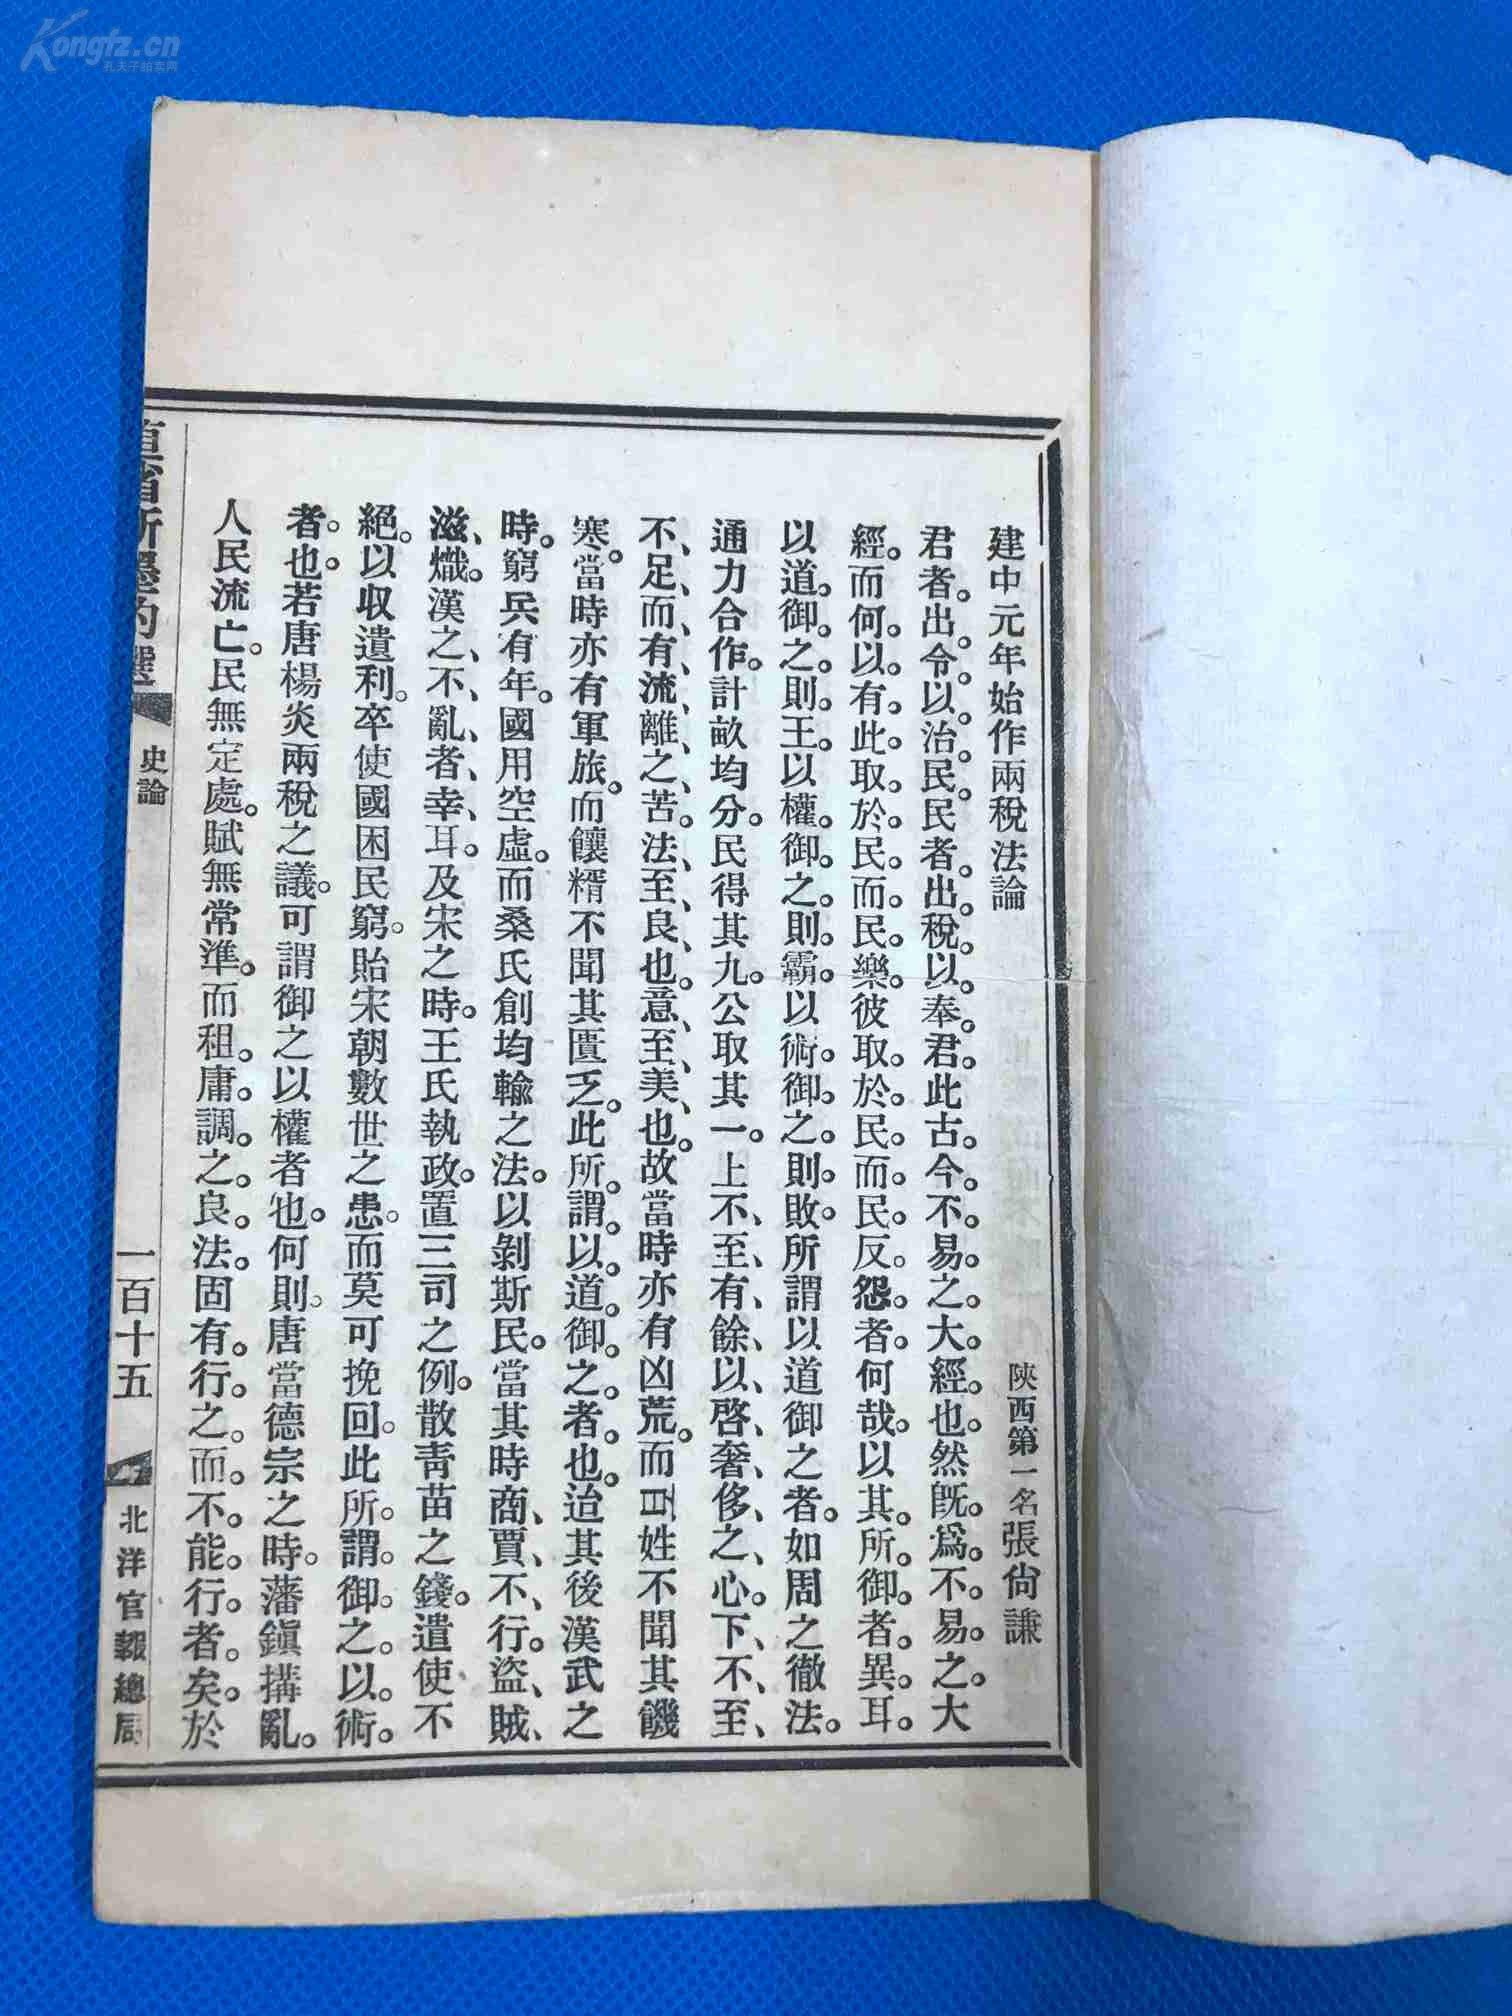 建中元年始作兩稅法論
陝西第一名張尙謙
君者。出。令。以。治。民。民者。出。稅。以。奉。君。此古。今。不。易。之。大。經。也。然旣。爲。不。易。之。大
經。而何。以。有。此。取。於。民。而。民。樂。彼取。於。民。而。民。反。怨。者。何哉。以其。所。御。者。異。耳。
以道。御。之。則。王。以權。御。之。則。霸。以術。御。之。則。敗。所謂以道御之者。如周之徹法。
通力合作。計畝均分。民得其九。公取其一。上不、至、有、餘、以、啓、奢、侈、之、心。下、不、至、
不、足、而、有、流、離、之、苦。法、至、良、也。意、至、美、也。故當時亦有凶荒。而百姓不聞其饑
寒。當時亦有軍旅。而饟糈不聞其匱乏。此所。謂。以。道。御。之。者。也。迨其後漢武之
時。窮兵有年。國用空虛。而桑氏創均輸之法。以剝斯民。當其時商、賈、不、行。盜、賊、
滋、熾。漢之、不、亂、者、幸、耳。及宋之時。王氏執政。置三司之例。散靑苗之錢。遣使不
絕。以收遺利。卒使國困民窮。貽宋朝數世之患。而莫可挽回。此所。謂。御。之。以。術。
者。也。若唐楊炎兩稅之議。可謂御之以權者也。何則。唐當德宗之時。藩鎭搆亂。
人民流亡。民無定處。賦無常準。而租。庸。調。之。良。法。固有。行。之。而。不。能。行。者。矣。於
直省新墨約選
史論
一百十五
北洋官報總局
Kongfz.cn
孔夫子拍卖网